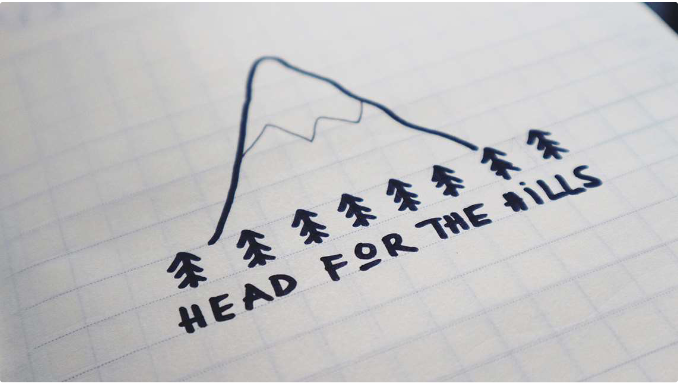 HEAD FOR THE HiLLS